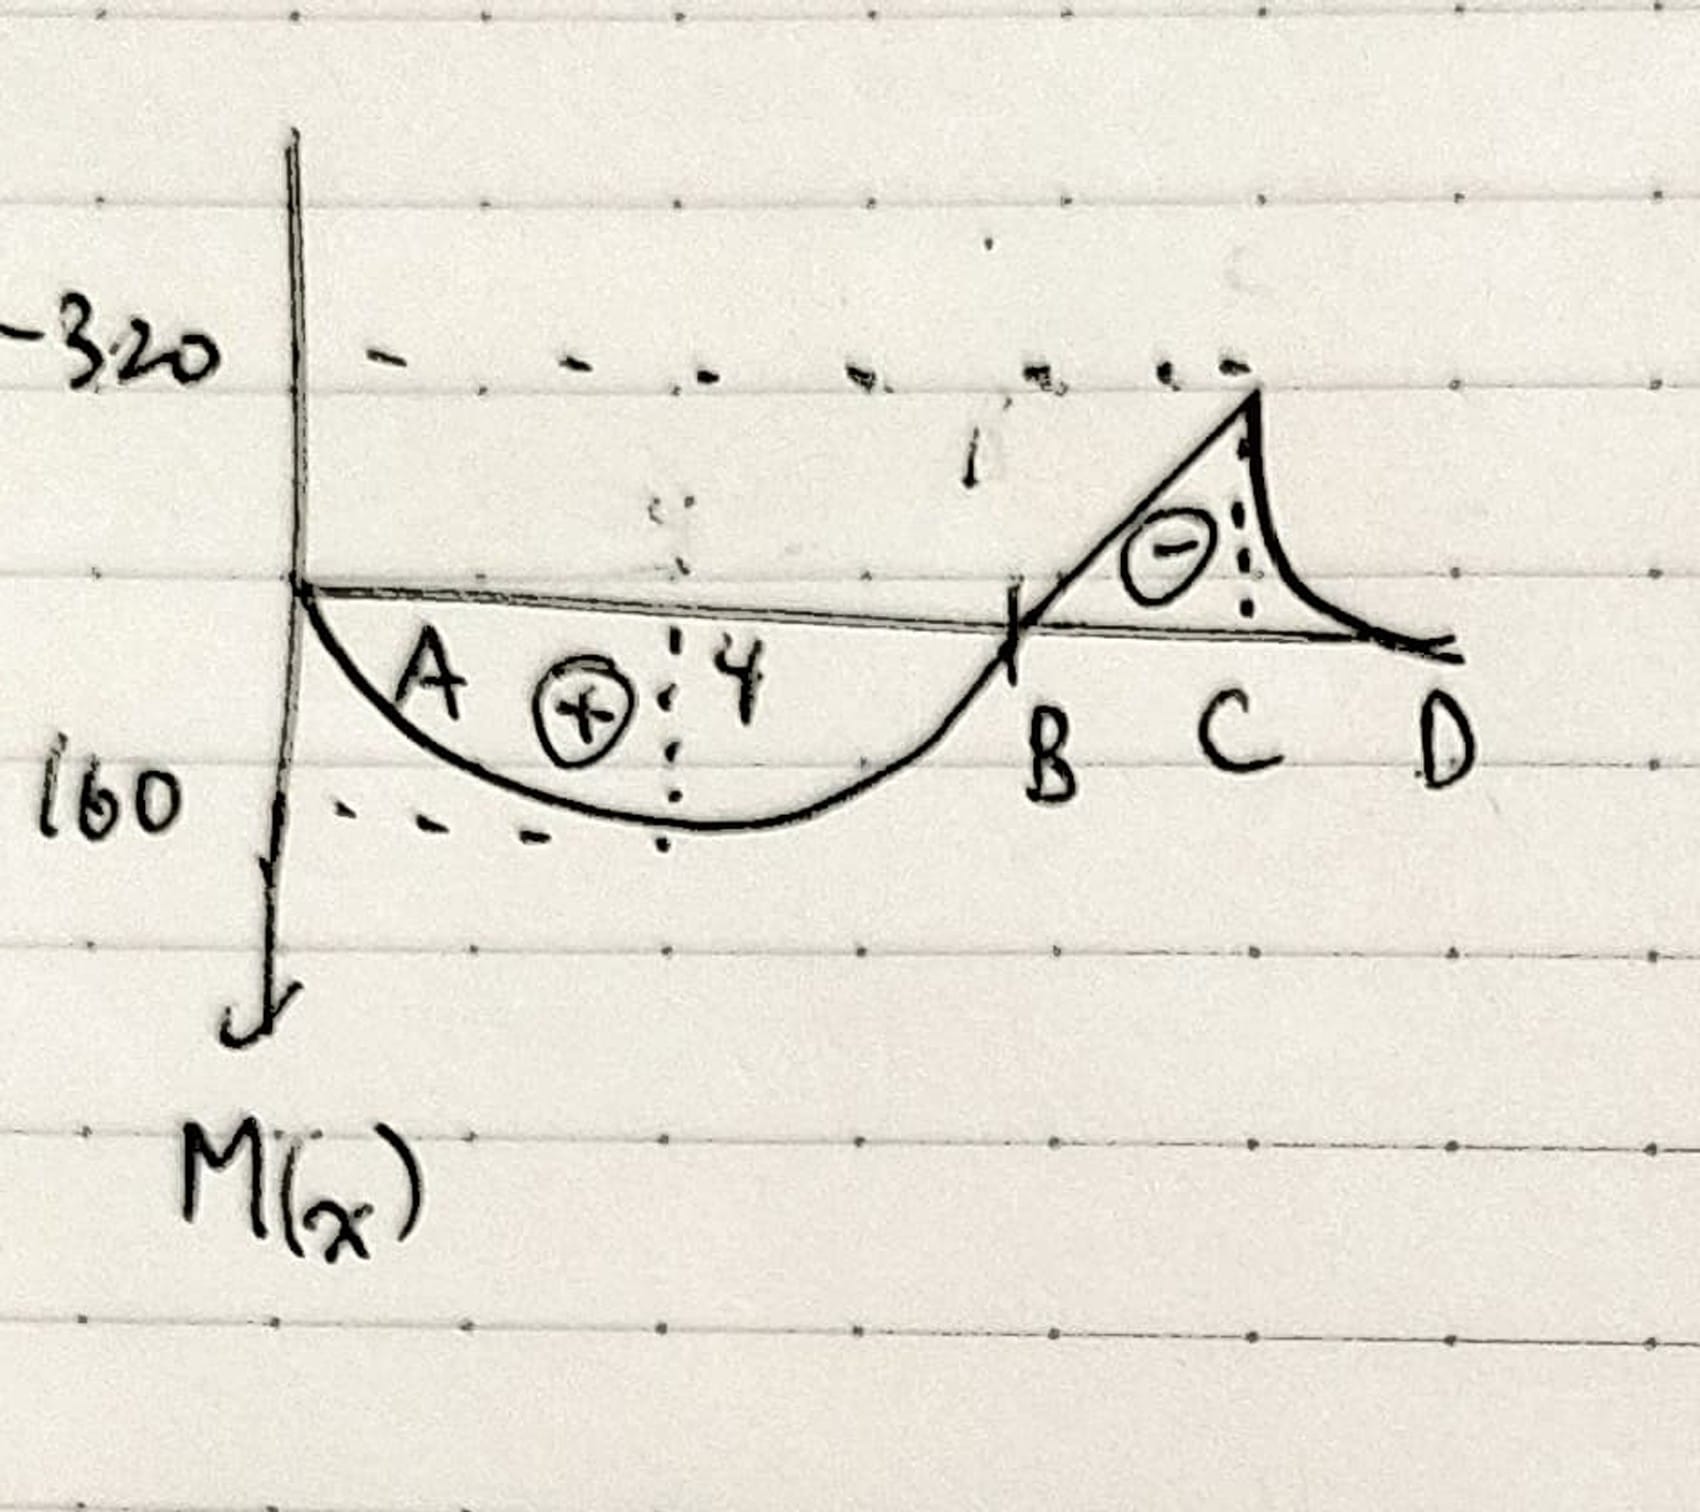 -320
A + 4
-
B C D
160
M(x)